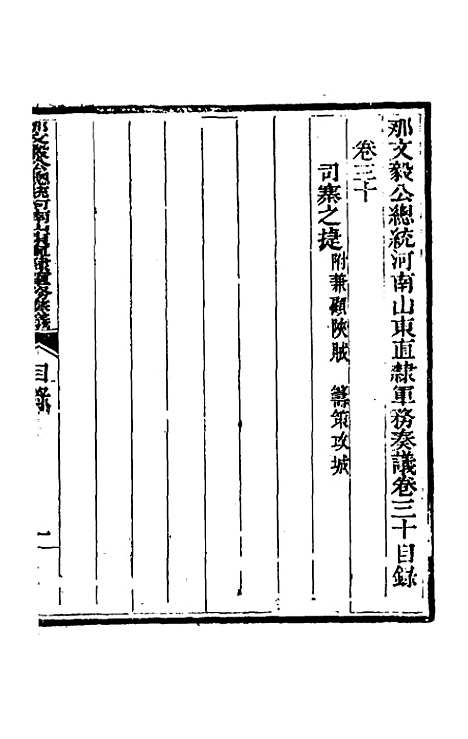 那文毅公總統河南山東直隸軍務奏議卷三十目錄
卷三十
司寨之捷 附兼顧陜賊 籌策攻城
那文毅公總統河南山東直隸軍務奏議
目錄
一